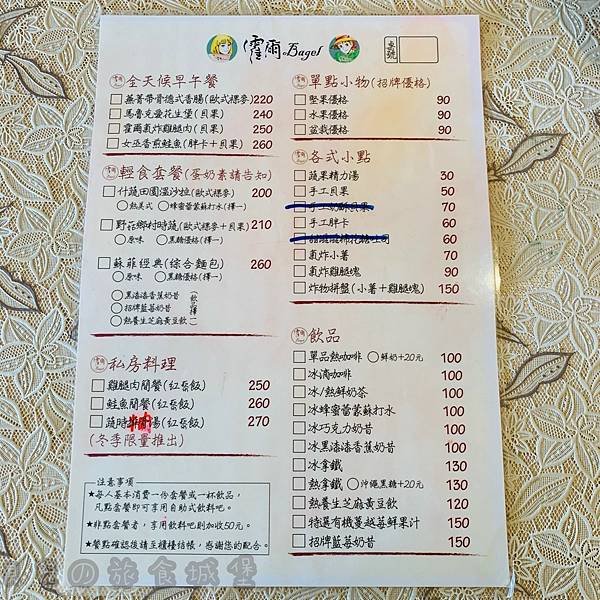 霍爾Bagel
桌號
全天候早午餐
燕菁帶骨德式香腸(歐式裸麥)220
馬魯克蛋花生堡(貝果) 240
霍爾氣炸雞腿肉(貝果) 250
女巫香煎鮭魚(胖卡+貝果) 260
輕食套餐(蛋奶素請告知)
什蔬田園溫沙拉(歐式裸麥) 200
熱美式 蜂蜜蕾蒙蘇打水(擇一)
野菇鄉村時蔬(歐式裸麥+貝果) 210
原味 黑糖優格(擇一)
蘇菲經典(綜合麵包) 260
原味 黑糖優格(擇一)
黑漆漆香蕉奶昔
招牌藍莓奶昔
熱養生芝麻黃豆飲
飲品擇一
私房料理
雞腿肉簡餐(紅藜飯) 250
鮭魚簡餐(紅藜飯) 260
蔬時鍋湯(紅藜飯) 270
(冬季限量推出)
注意事項
★每人基本消費一份套餐或一杯飲品,
凡點套餐即可享用自助式飲料吧。
★非點套餐者,享用飲料吧則加收50元。
★餐點確認後請至櫃檯結帳,感謝您的配合。
單點小物(招牌優格)
堅果優格 90
水果優格 90
盆栽優格 90
各式小點
蔬果精力湯 30
手工貝果 50
手工奶酥貝果 70
手工胖卡 60
甜滋滋棉花糖吐司 60
氣炸小薯 70
氣炸雞腿塊 90
炸物拼盤(小薯+雞腿塊) 150
飲品
單品熱咖啡 鮮奶+20元 100
冰滴咖啡 100
冰/熱鮮奶茶 100
冰蜂蜜蕾蒙蘇打水 100
冰巧克力奶昔 100
冰黑漆漆香蕉奶昔 100
冰拿鐵 130
熱拿鐵 沖繩黑糖+20元 130
熱養生芝麻黃豆飲 120
特選有機蔓越莓鮮果汁 150
招牌藍莓奶昔 150
の旅食城堡